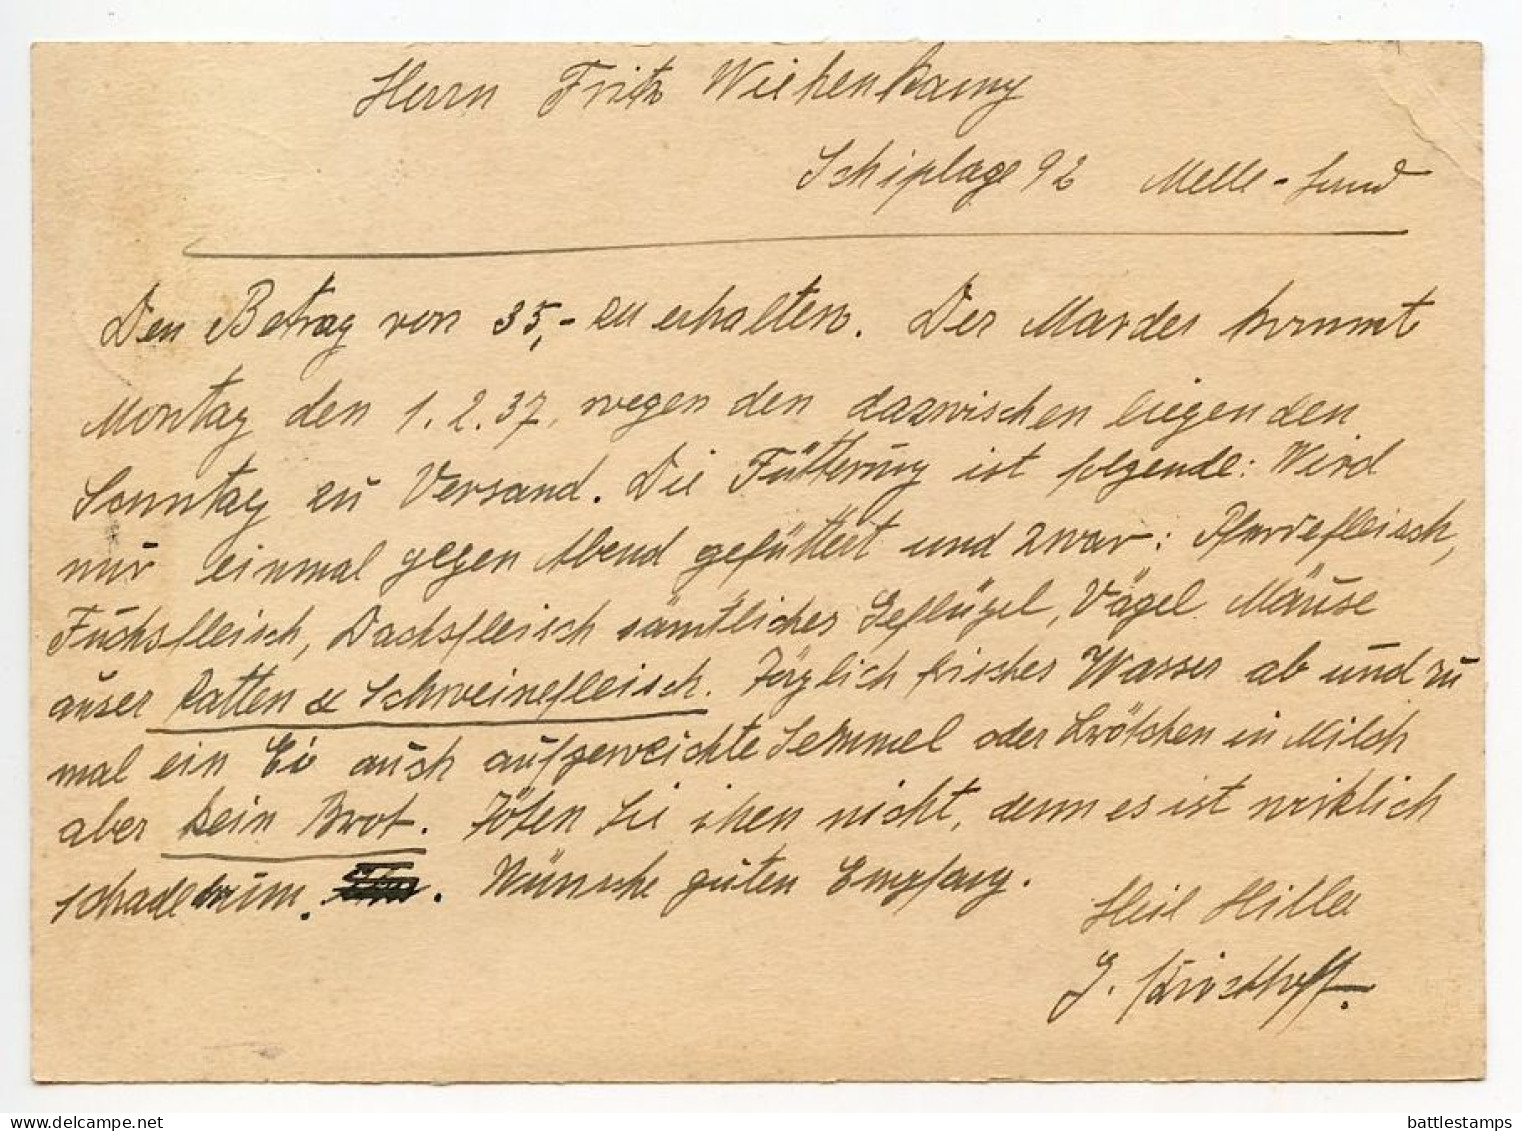 Herrn Fritz Wiehenkamp
Schiplage 92 Melle - Land
Den Betrag von 35,- zu erhalten. Der Marder kommt
Montag den 1.2.37. wegen den dazwischen liegenden
Sonntag zu Versand. Die Fütterung ist folgende: Wird
nur einmal gegen Abend gefüttert und zwar: Pferdefleisch,
Fuchsfleisch, Dachsfleisch sämtliches Geflügel, Vögel Mäuse
auser Ratten & Schweinefleisch. Täglich frisches Wasser ab und zu
mal ein Ei auch aufgeweichte Semmel oder Brötchen in Milch
aber kein Brot. Töten Sie ihen nicht, denn es ist wirklich
schade drum. Wünsche guten Empfang.
Heil Hitler
J.
battlestamps